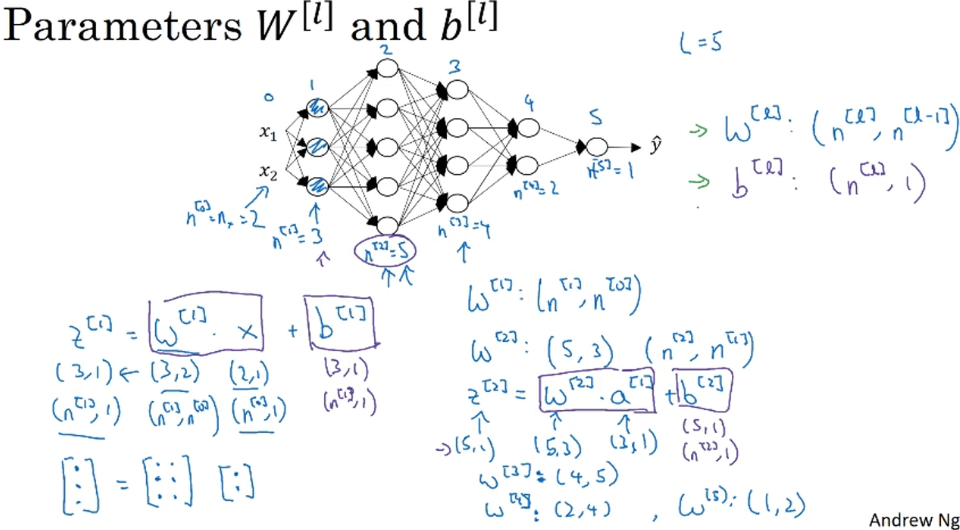 Parameters W^[l] and b^[l]
L = 5
0 1 2 3 4 5
x₁
x₂
ŷ
n^[0] = n_x = 2
n^[1] = 3
n^[2] = 5
n^[3] = 4
n^[4] = 2
n^[5] = 1
→ W^[l] : (n^[l], n^[l-1])
→ b^[l] : (n^[l], 1)
z^[1] = W^[1] · x + b^[1]
(3,1) ← (3,2) (2,1) (3,1)
(n^[1], 1) (n^[1], n^[0]) (n^[0], 1) (n^[1], 1)
[⋮] = [⋮ ⋮] [:]
W^[1] : (n^[1], n^[0])
W^[2] : (5, 3) (n^[2], n^[1])
z^[2] = W^[2] · a^[1] + b^[2]
→ (5,1) (5,3) (3,1) (5,1)
(n^[2], 1)
W^[3] : (4, 5)
W^[4] : (2, 4) , W^[5] : (1, 2)
Andrew Ng